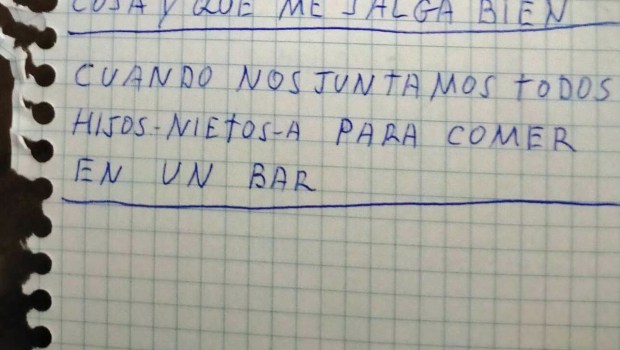 COSA Y QUE ME SALGA BIEN
CUANDO NOS JUNTAMOS TODOS
HIJOS-NIETOS-A PARA COMER
EN UN BAR